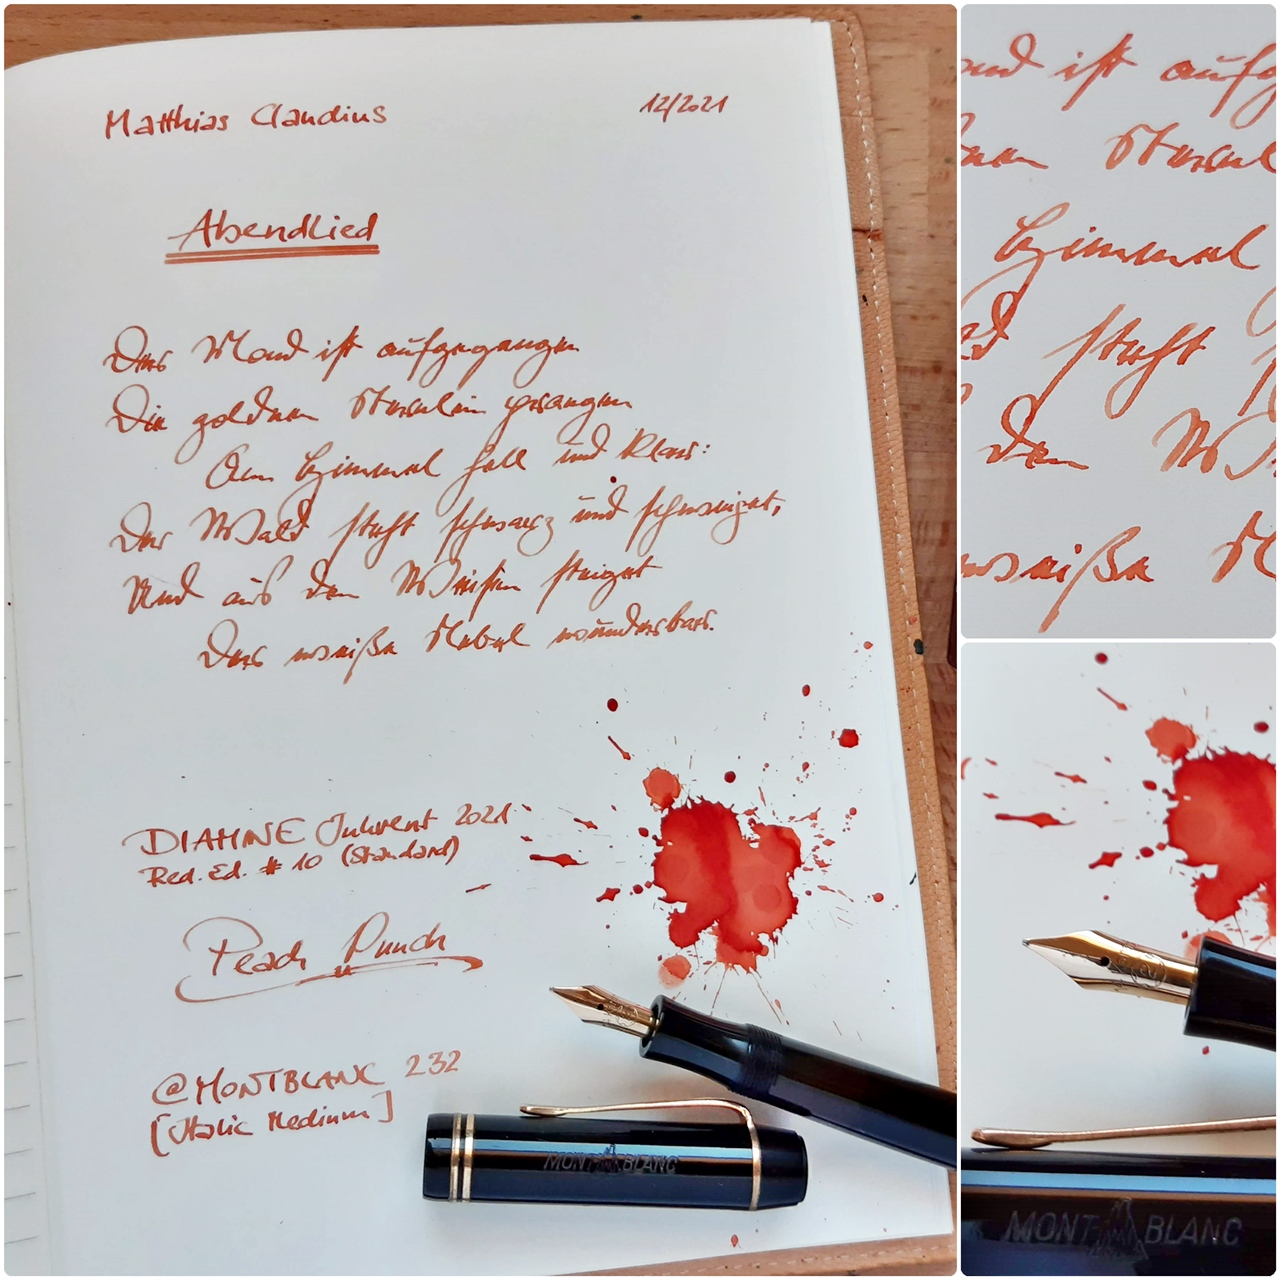 Matthias Claudius
12/2021
Abendlied
Der Mond ist aufgegangen
Die goldnen Sternlein prangen
Am Himmel hell und klar:
Der Wald steht schwarz und schweiget,
Und aus den Wiesen steiget
Der weiße Nebel wunderbar.
DIAMINE Inkvent 2021
Red. Ed. # 10 (Standard)
Peach Punch
@MONTBLANC 232
[Italic Medium]
MONT BLANC
ond ist aufg
nen Sternl
Himmel
d steht
den Wi
weiße N
MONT BLANC